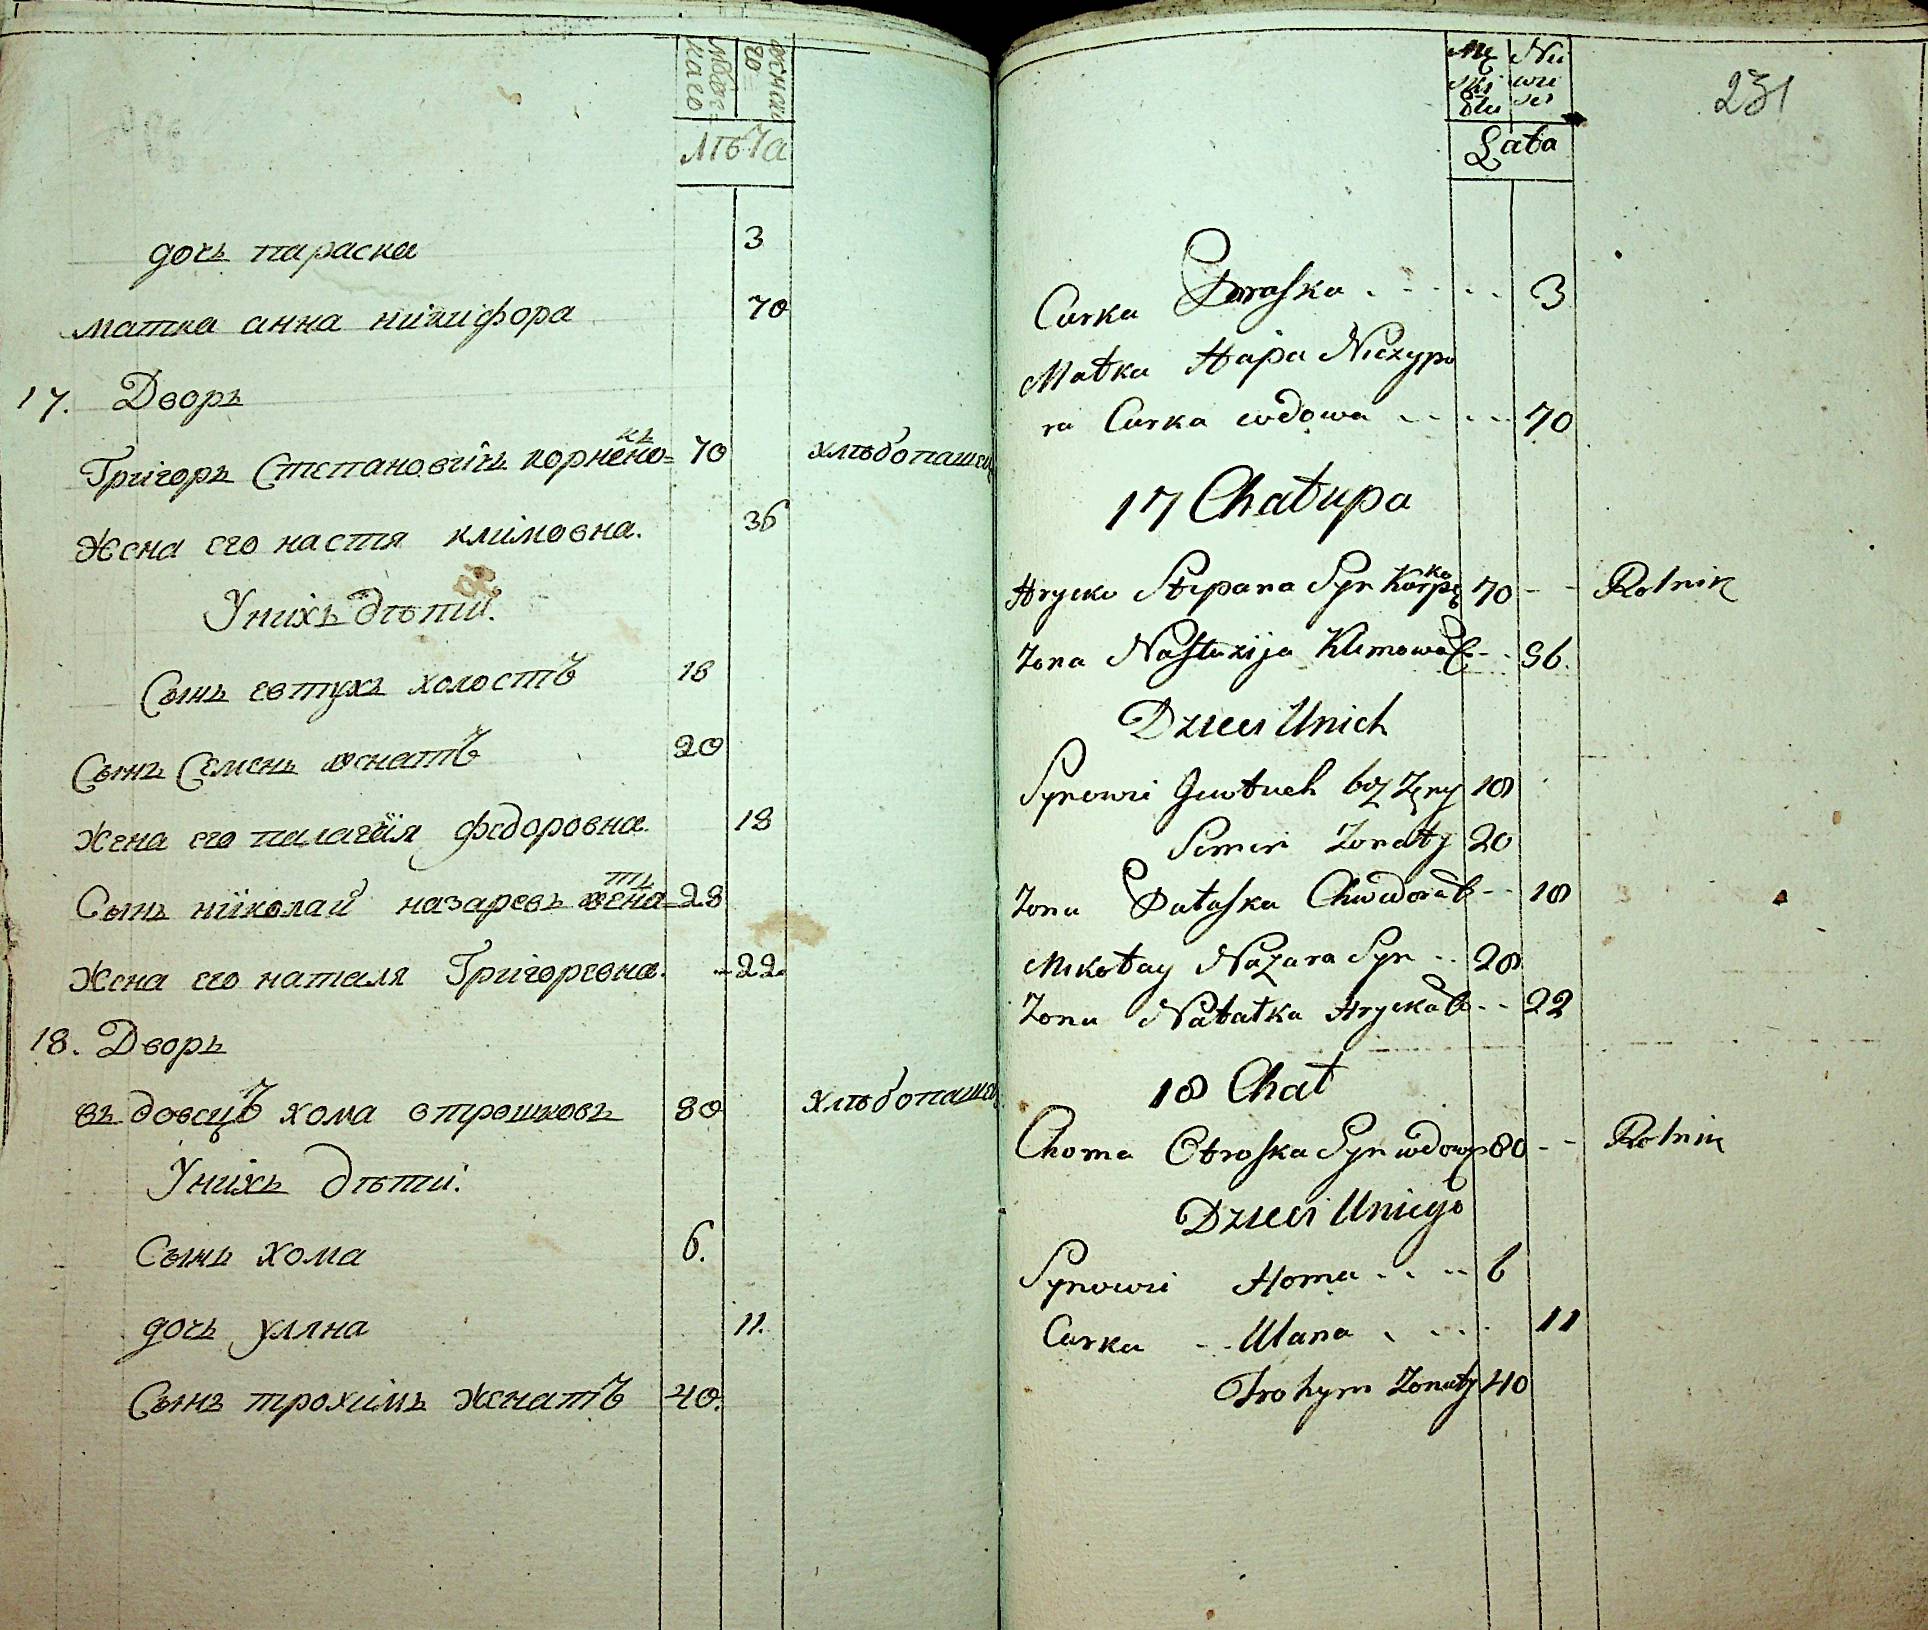 мужескаго
женскаго
лѣта
дочь параска 3
матка анна никифора 70
17. Дворъ
Григоръ Степановичъ корненко 70 хлѣбопашец
Жена его настя климовна. 36
У нихъ дѣти.
Сынъ евтухъ холостъ 18
Сынъ Семенъ женатъ 20
Жена его палагѣя федоровна. 18
Сынъ николай назаревъ женатъ 28
Жена его наталя Григоревна. 22
18. Дворъ
въ довецъ хома отрошковъ 80 хлѣбопашец
У нихъ дѣти.
Сынъ хома 6.
дочь уляна 11.
Сынъ трохимъ Женатъ 40.
231
Łata
Curka Paraska 3
Matka Hapa Niczypo
ra Curka wdowa 70
17 Chałupa
Hrycko Stepana Syn 70 Rolnik
Zona Nastazija Klimowa C 36.
Dzieci Unich
Synowie Jewtuch bez Zeny 18
Semen Zonaty 20
Zona Pałaska Chwedora C 18
Mikołay Nazara Syn 28
Zona Natałka Hrycka C 22
18 Chał
Choma Otroska Syn wdowy 80 Rolnik
Dzieci Uniego
Synowie Homa 6
Curka Ulana 11
Trohym Zonaty 40